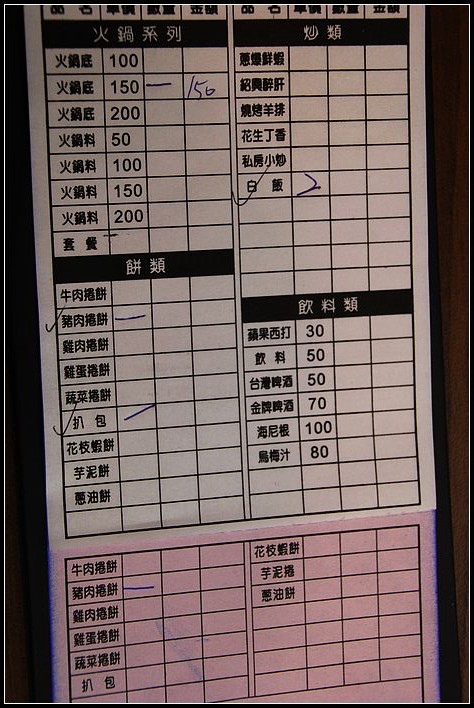 品 名 單價 數量 金額
火鍋系列
火鍋底 100
火鍋底 150 一 150
火鍋底 200
火鍋料 50
火鍋料 100
火鍋料 150
火鍋料 200
套 餐
餅類
牛肉捲餅
豬肉捲餅 一
雞肉捲餅
雞蛋捲餅
蔬菜捲餅
扒 包 一
花枝蝦餅
芋泥餅
蔥油餅
品 名 單價 數量 金額
炒類
蔥爆鮮蝦
紹興醉肝
燒烤羊排
花生丁香
私房小炒
白 飯 2
飲料類
蘋果西打 30
飲 料 50
台灣啤酒 50
金牌啤酒 70
海尼根 100
烏梅汁 80
牛肉捲餅
豬肉捲餅 一
雞肉捲餅
雞蛋捲餅
蔬菜捲餅
扒 包
花枝蝦餅
芋泥捲
蔥油餅